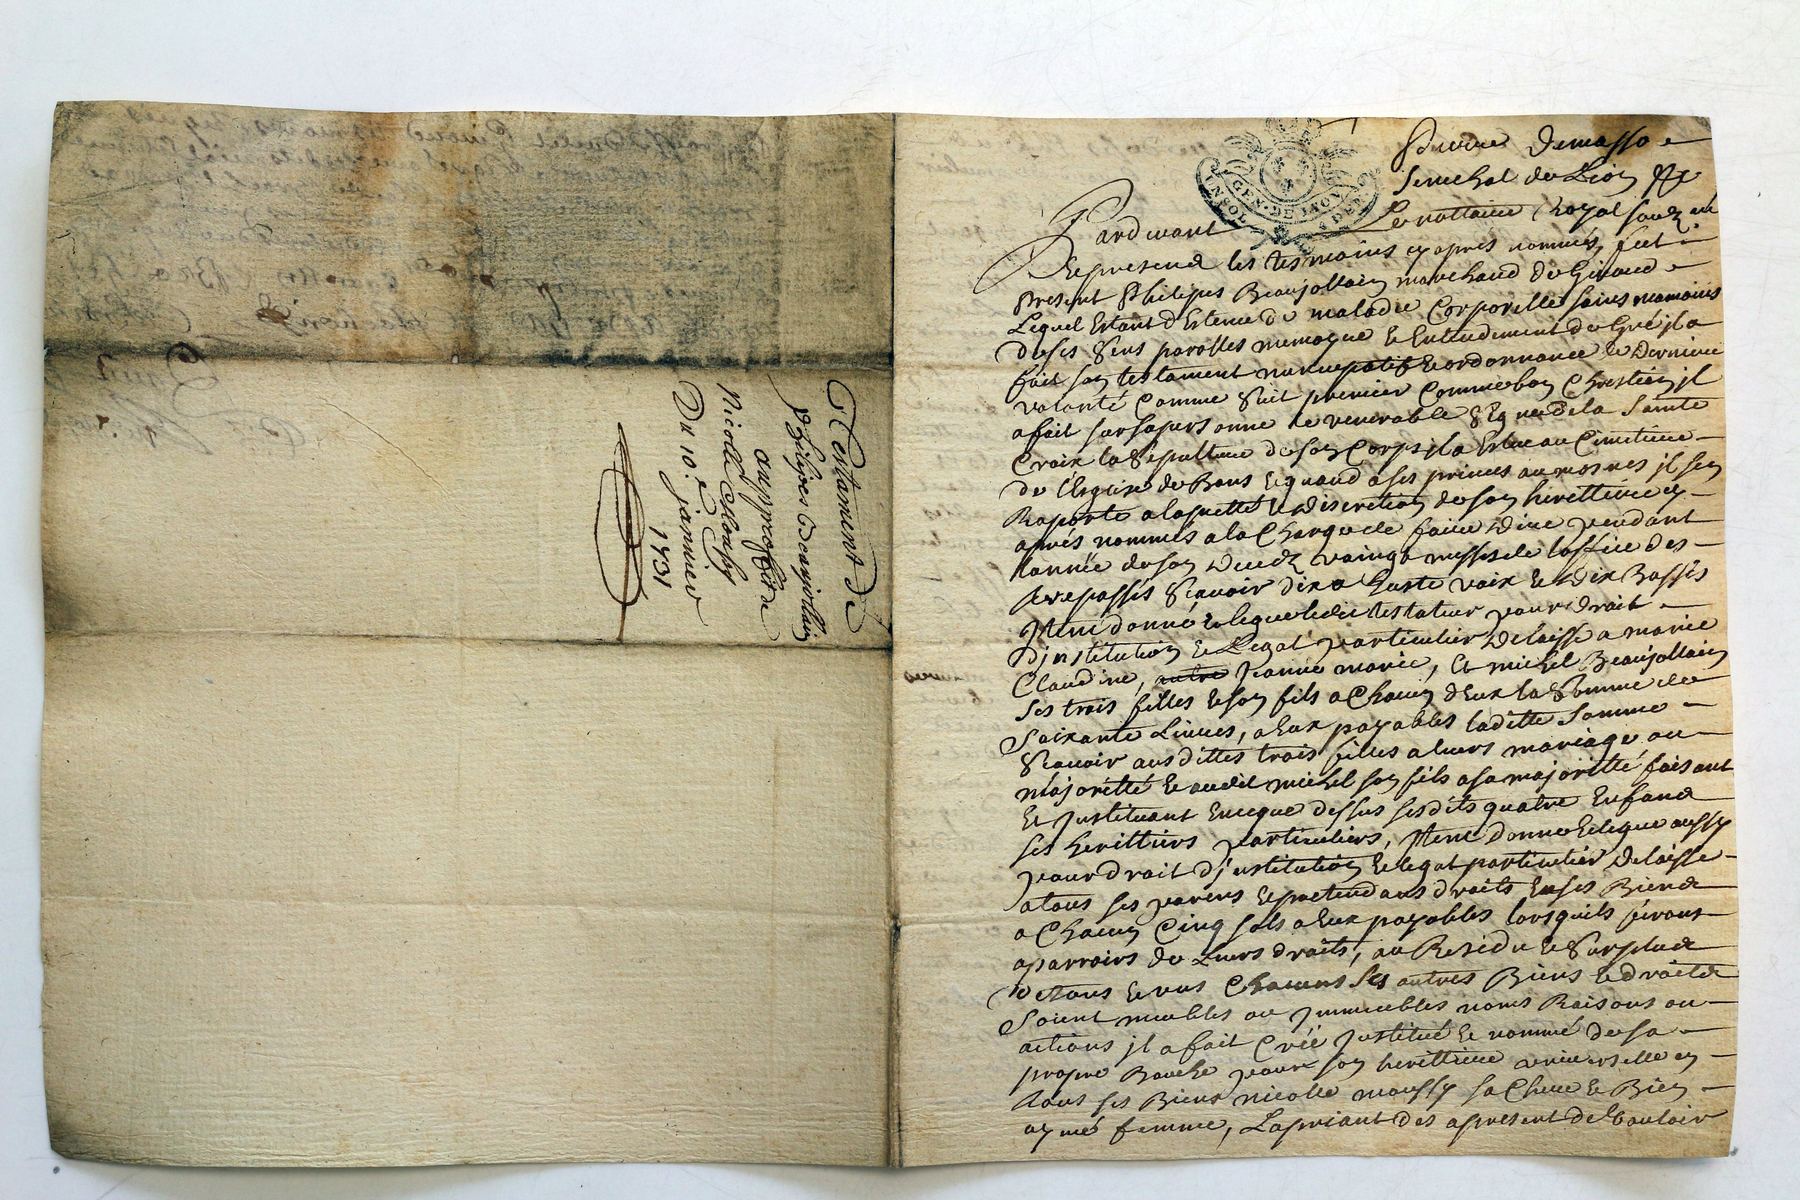 Testament de
Philipes Beaujollain
au proffit de
Nicolle
Du 10e janvier
1731
GEN. DE LYON
UN SOL
Pierre Demasso
Senechal de Lion &c
Pardevant Le nottaire Royal souz né
Et presend les tesmoins cy apres nommés, feut
present Philipes Beaujollain marchand de
Lequel Estant d'Etenu de maladie Corporelle sains neamoins
de ses sens parolles memoyre et Entendement de Gré jl a
fait son testament nuncupatif et ordonnance de derniere
volonté comme suit premier comme bon Chrestien jl
a fait sur sa personne le venerable signe de la Sainte
Croix la sepulture de son Corps jl a Esleu au Cimitiere
de l'Esglise de Bans Et quand a ses prieres aumosnes jl s'en
Raporte a la volonté et discretion de son herittiere cy
aprés nommés a la Charge de faire dire pendant
l'année de son decedz vaingt messes de l'office des
trepassés scavoir dix a haute voix et dix Basses
Item donne et legue ledit testateur pour droit
d'jnstitution et Legat particulier delaisse a marie
Claudine, autre jeanne marie, et michel Beaujollain
ses trois filles et son fils a Chacun d'Eux la Somme de
Soixante Livres, a Eux payables laditte Somme
Scavoir ausdittes trois filles a leurs mariage ou
majoritté et audit michel son fils a sa majoritté faisant
Et jnstituant En ce que dessus sesdits quatre Enfand
ses herittiers particuliers, Item donne et legue aussy
pour droit d'jnstitution et legat particulier delaisse
a tous ses parens Et pretendans droits En ses Biend
a Chacun Cinq sols a Eux payables lorsquils feront
aparroirs de Leurs droits, au Residu et Surplud
de tous et uns Chacuns Ses autres Biens et droitd
Soient meubles ou jmmeubles noms Raisons ou
actions jl a fait Créé jnstitué et nommé de sa
propre Bouche pour son herittiere universelle en
tous ses Biens nicolle sa Chere et Bien
aymé femme, La priant des apresent de vouloir